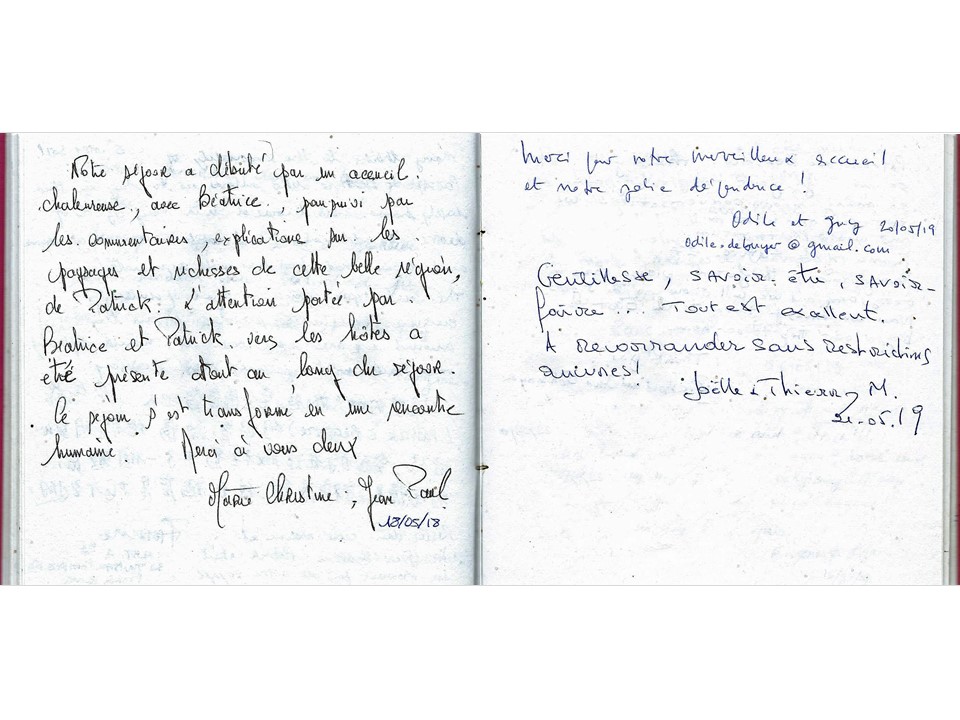 Notre séjour a débuté par un accueil.
chaleureuse, avec Béatrice, poursuivi par
les commentaires, explications sur les
paysages et richesses de cette belle région,
de Patrick. L'attention portée par
Béatrice et Patrick vers les hôtes a
été présente tout au long du séjour.
Ce séjour s'est transformé en une rencontre
humaine. Merci à vous deux
Marie Christine, Jean Paul
18/05/18
Merci pour votre merveilleux accueil
et votre jolie dépendance !
Odile et Guy 20/05/19
Odile.debuyer@gmail.com
Gentillesse, savoir-être, savoir-
faire... Tout est excellent.
A recommander sans restrictions
aucunes !
Joëlle & Thierry M.
21.05.19